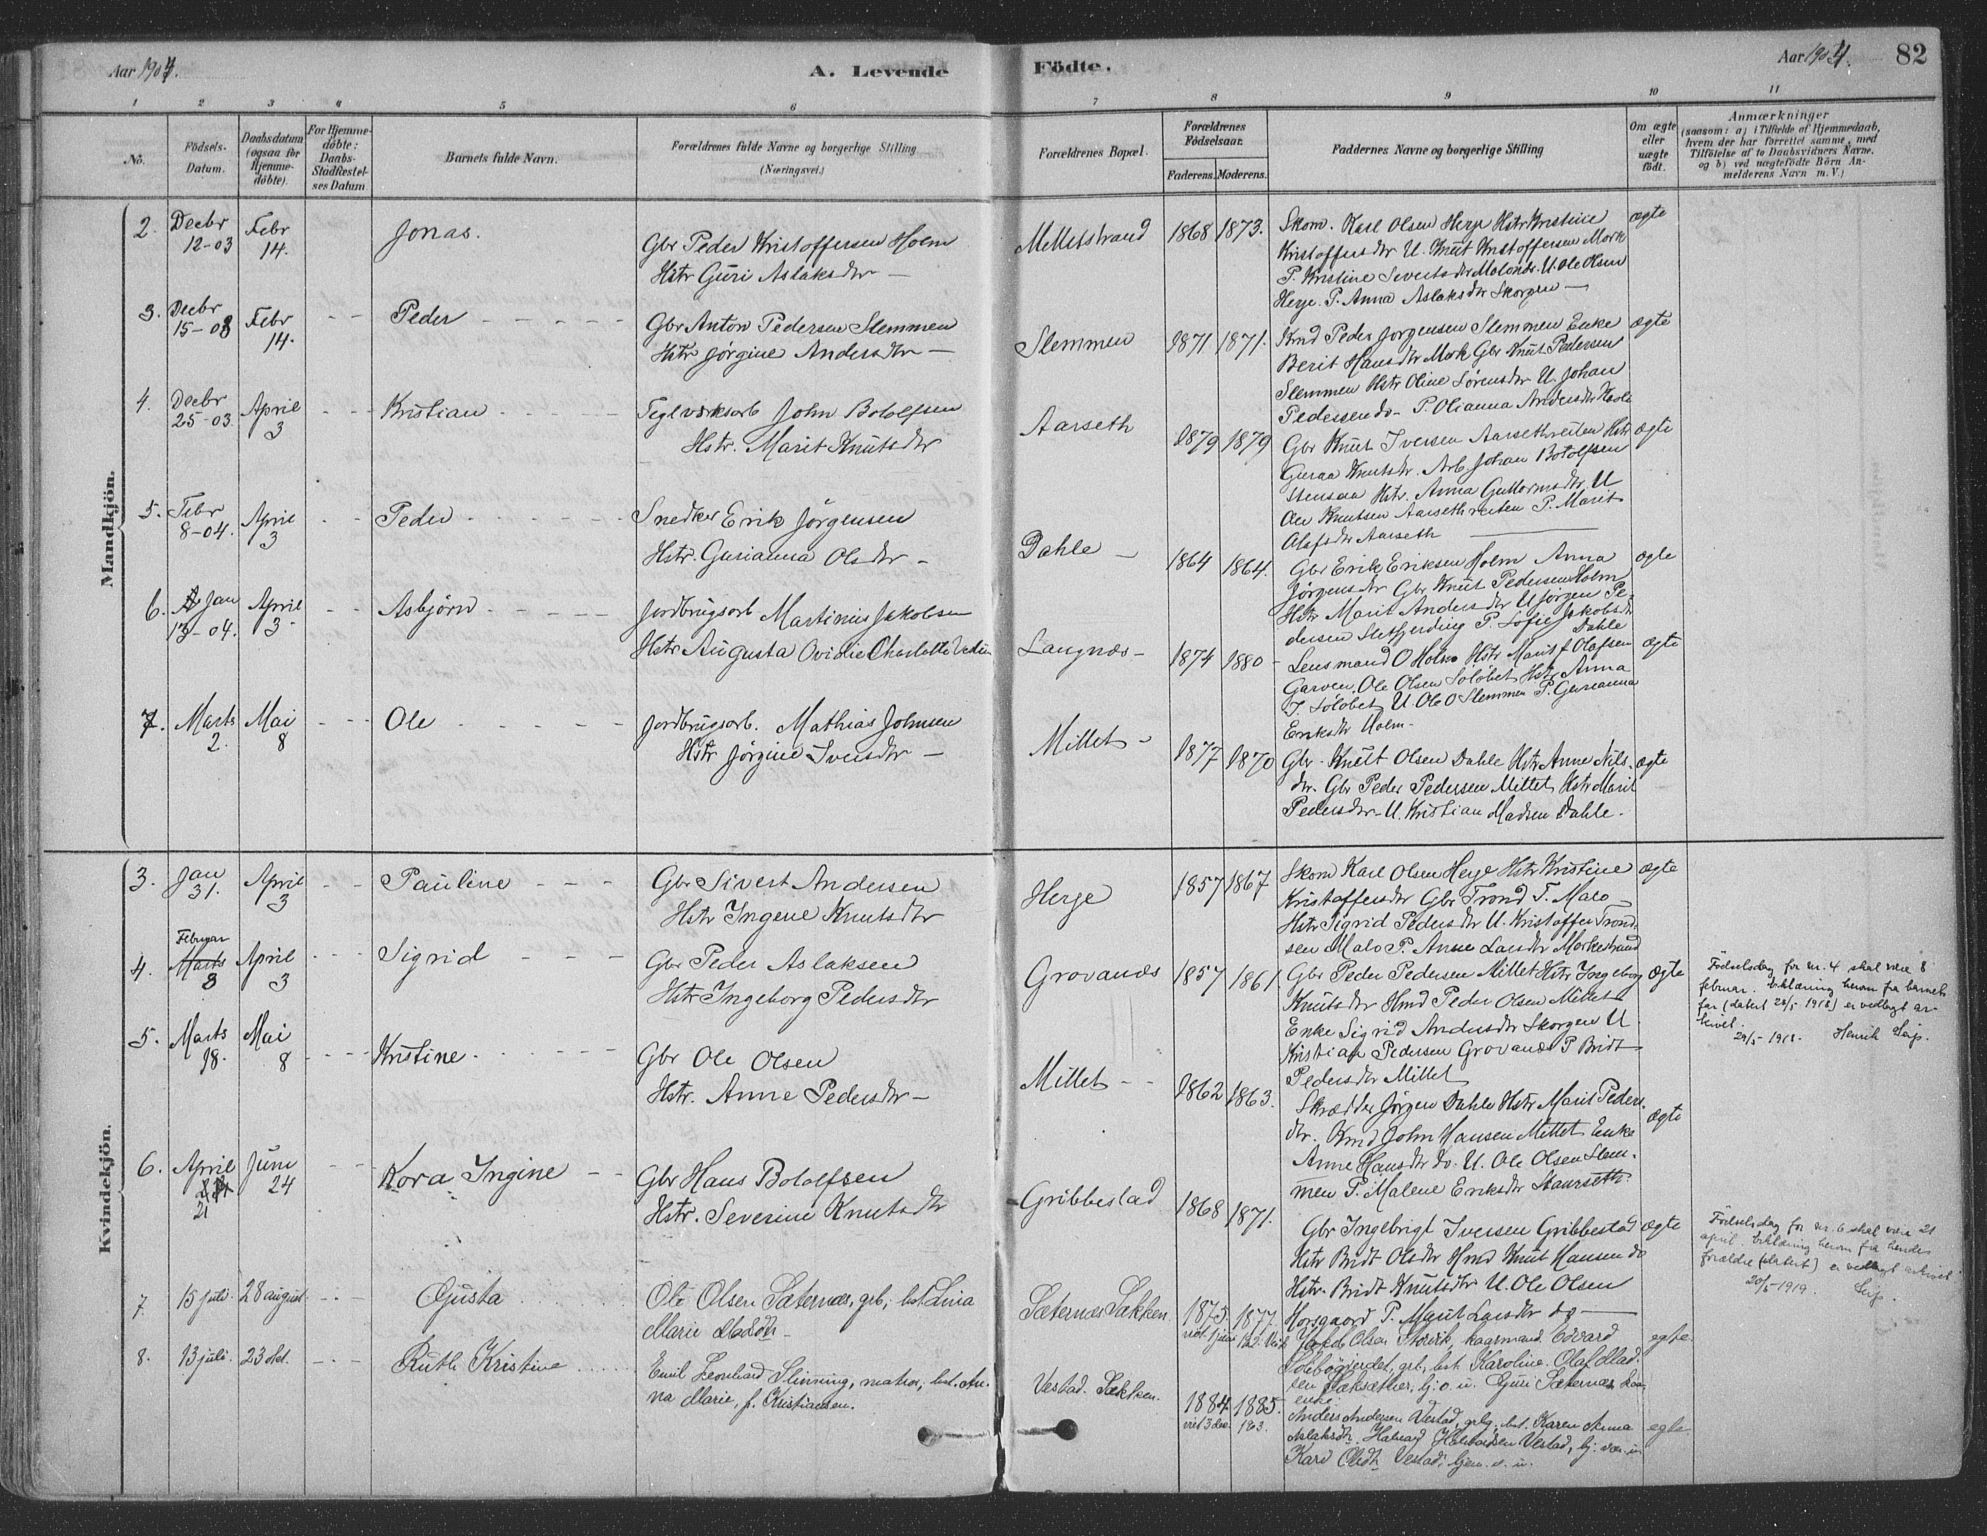 Aar 1904.
A. Levende
Fødte.
Aar 1904.
82
1 2 3 4 5 6 7 8 9 10 11
No.
Födsels-
Datum.
Daabsdatum
(ogsaa for
Hjemme-
döbte).
For Hjemme-
döbte:
Daabs-
Stadfæstel-
ses Datum
Barnets fulde Navn.
Forældrenes fulde Navne og borgerlige Stilling
(Næringsvei.)
Forældrenes Bopæl.
Forældrenes
Födselsaar.
Faderens. Moderens.
Faddernes Navne og borgerlige Stilling
Om ægte
eller
uægte
födt.
Anmærkninger
(saasom: a) i Tilfælde af Hjemmedaab,
hvem der har forrettet samme, med
Tilföielse af to Daabsvidners Navne.
og b) ved uægtefödte Börn An-
melderens Navn m. V.)
Mandkjön.
2. Decbr 12-03 Febr 14. Jonas.
Gbr Peder Kristoffersen Holm
Hstr Guri Aslaksdtr —
Milletstrand 1868 1873.
Skom. Karl Olsen Herje Hstr Kristine
Kristoffersdtr U. Knut Kristoffersen Mork
P. Kristine Sivertsdtr U. Ole Olsen
Herje. P. Anna Aslaksdtr Skorgen —
ægte
3. Decbr 15-03 Febr 14. Peder
Gbr Anton Pedersen Slemmen
Hstr Jørgine Andersdtr —
Slemmen 1871 1871.
Kmd Peder Jørgensen Slemmen Enke
Berit Hansdtr Mork Gbr Knut Pedersen
Slemmen Hstr Oline Sørensdtr U. Johan
Pedersen do- P. Olianna Andersdtr
ægte
4. Decbr 25-03 April 3 Kristian
Teglværksarb John Botolfsen
Hstr. Marit Knutsdtr
Aarseth 1879 1879
Gbr Knut Iversen Aarsethreiten Hstr
Guraa Knutsdtr. Arb. Johan Botolfsen
Stensaa Hstr. Anna Guttormsdtr U
Ole Knutsen Aarsethreiten P. Marit
Olafsdtr Aarseth
ægte
5. Febr 8-04. April 3 Peder
Snedker Erik Jørgensen
Hstr. Gurianna Olsdtr -
Dahle — 1864 1864.
Gbr Erik Eriksen Holm Anna
Jørgensdtr Gbr Knut Pedersen Holm
Hstr Marit Andersdtr U Jørgen Pe-
dersen P. Sofie Jakobsdtr
Dahle
ægte
6. Jan 13-04. April 3 Asbjørn
Jordbrugsarb Martinus Jakobsen
Hstr Augusta Ovidie Charlotte
Langnæs - 1874 1880 -
Lensmand O Holm Hstr Marit J Olafsen
Garven. Ole Olsen Soløbet Hstr Anna
J. Soløbet U. Ole O Slemmen P. Gurianna
Eriksdtr Holm-
ægte
7. Marts 2. Mai 8 Ole
Jordbrugsarb. Mathias Johnsen
Hstr Jørgine Iversdtr —
Millet - 1877 1870
Gbr. Knut Olsen Dahle Hstr Anne Nils-
dtr. Gbr Peder Pedersen Millet Hstr Marit
Pedersdtr - U. Kristian Madsen Dahle.
ægte
Kvindekjön.
3. Jan 31. April 3 Pauline
Gbr Sivert Andersen
Hstr Ingene Knutsdtr
Herje 1857 1867
Skom Karl Olsen Herje Hstr Kristine
Kristoffersdtr Gbr Trond T. Malo
Hstr Sigrid Pedersdtr U. Kristoffer Trond-
sen Malo P. Anne Larsdtr Morkestrand
ægte
4. Februar Marts 8 April 3 Sigrid
Gbr Peder Aslaksen
Hstr Ingeborg Pedersdtr
Grovanæs 1857 1861.
Gbr Peder Pedersen Millet Hstr Ingeborg
Knutsdtr Kmd Peder Olsen Millet
Enke Sigrid Andersdtr Skorgen U.
Kristian Pedersen Grovanæs P Bridt
Pedersdtr Millet
ægte
Fødselsdag for nr. 4 skal være 8
februar. Erklæring herom fra barnets
far (datert 28/5 1918) er vedlagt ar-
kivet.
29/5 1918. Henrik Seip.
5. Marts 18. Mai 8 Kristine
Gbr Ole Olsen
Hstr. Anne Pedersdtr -
Millet - - 1862 1863.
Skrædder Jørgen Dahle Hstr Marit Peders-
dtr. Kmd John Hansen Millet Enke
Anne Hansdtr do. U. Ole Olsen Slem-
men P. Malene Eriksdtr Staurseth
ægte
6. April 21 Juni 24 Kora Ingine
Gbr Hans Botolfsen
Hstr. Severine Knutsdtr
Gribbestad 1868 1871.
Gbr Ingebrigt Iversen Gribbestad
Hstr Bridt Olsdtr Kmd Knut Hansen do
Hstr. Bridt Knutsdtr U. Ole Olsen
Horsgaard P. Marit Larsdtr do —
ægte
Fødselsdag for nr. 6 skal være 21
april. Erklæring herom fra hendes
forældre (datert) er vedlagt arkivet
20/5-1919. Seip.
7 15 juli. 28 august. Gusta
Ole Olsen Sæternæs, grb., hst. Lina
Marie Madsdtr.
Sæternæs Sækken. 1875 1877.
Olsen Storvik, kaarmand Edvard
Solebøgjerdet, grb, hst. Karoline. Olaf Mad-
sen Sæksæther, bj. o. u. Guri Sæternæs kaa-
enke
egte
8. 13 juli. 23 okt. Ruth Kristine
Emil Leonhard Slinning, matros, hst. An-
na Marie, f. Kristiansen.
Vestad. Sækken. 1884. 1885.
Anders Andersen Vestad, grb, hst. Karen Anna
Aslaksdtr. Halvard Halvardsen Vestad,
Kari Olsdtr Vestad, hjem. o. u.
egte